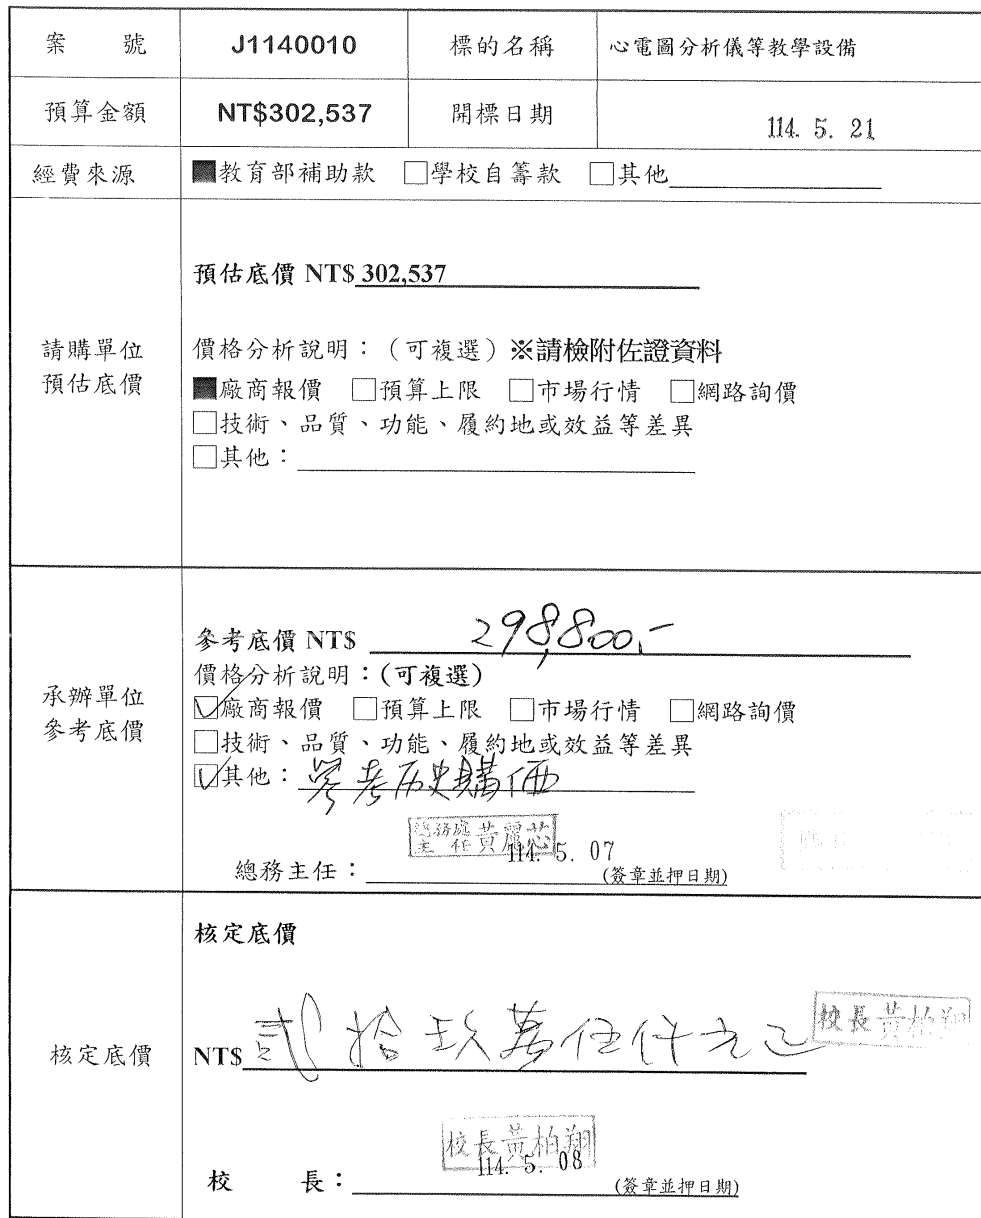 案 號 J1140010 標的名稱 心電圖分析儀等教學設備
預算金額 NT$302,537 開標日期 114. 5. 21
經費來源 ■教育部補助款 □學校自籌款 □其他
預估底價 NT$ 302,537
請購單位
預估底價
價格分析說明：（可複選）※請檢附佐證資料
■廠商報價 □預算上限 □市場行情 □網路詢價
□技術、品質、功能、履約地或效益等差異
□其他：
承辦單位
參考底價
參考底價 NT$ 298,800.-
價格分析說明：(可複選)
☑廠商報價 □預算上限 □市場行情 □網路詢價
□技術、品質、功能、履約地或效益等差異
☑其他：參考历史購価
總務處主任 黃麗芯
114. 5. 07
總務主任：
(簽章並押日期)
核定底價
核定底價
NT$ 貳拾玖萬伍仟元正
校長黃柏翔
校長黃柏翔
114. 5. 08
校 長：
(簽章並押日期)